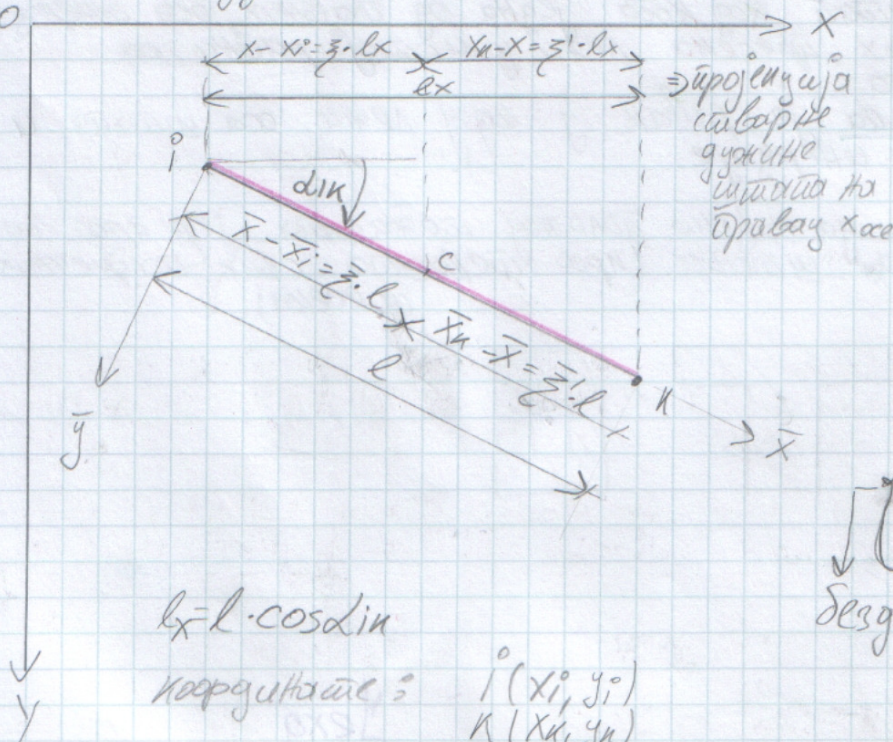 O
X
x-xᵢ=ξ·lx
xₖ-x=ξ'·lx
lx
⇒пројекција
стварне
дужине
штапа на
правац x осе
i
αik
x̄-x̄ᵢ=ξ̄·l
c
x̄ₖ-x̄=ξ̄'·l
l
k
x̄
ȳ
lx=l·cosαik
координате:
i(xᵢ, yᵢ)
k(xₖ, yₖ)
Y